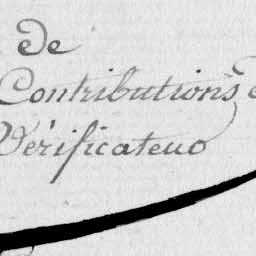 de
Contributions
Vérificateur